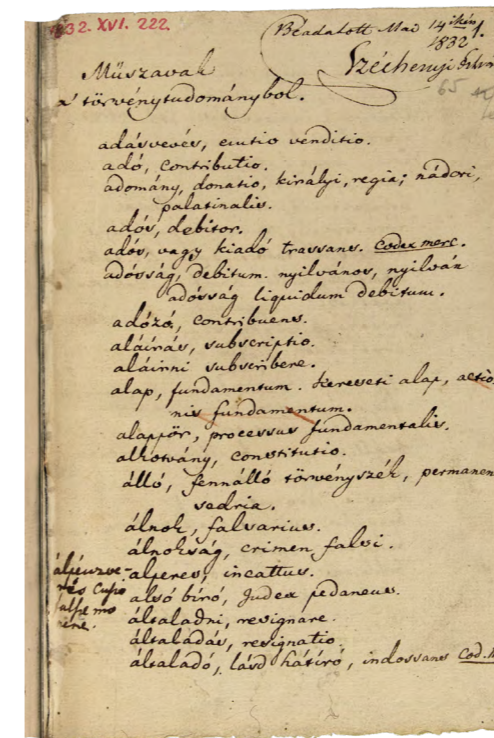 1832. XVI. 222.
Béadatott Mai 14ikén
1832
Széchenyi
65
Műszavak
a' törvénytudományból.
adásvevés, emtio venditio.
adó, contributio.
adomány, donatio, királyi, regia; nádori,
palatinalis.
adós, debitor.
adós, vagy kiadó trassans. Codex merc.
adósság, debitum. nyilvános, nyilván
adósság liquidum debitum.
adózó, contribuens.
aláírás, subscriptio.
aláírni subscribere.
alap, fundamentum. kereseti alap, actio
nis fundamentum.
alappör, processus fundamentalis.
alkotvány, constitutio.
álló, fennálló törvényszék, permanen
sedria.
álnok, falsarius.
álnokság, crimen falsi.
alperes, incattus.
alsó biró, Judex pedaneus.
általadni, resignare.
általadás, resignatio.
általadó, lásd hátíró, indossans Cod.
álpénzve-
rés